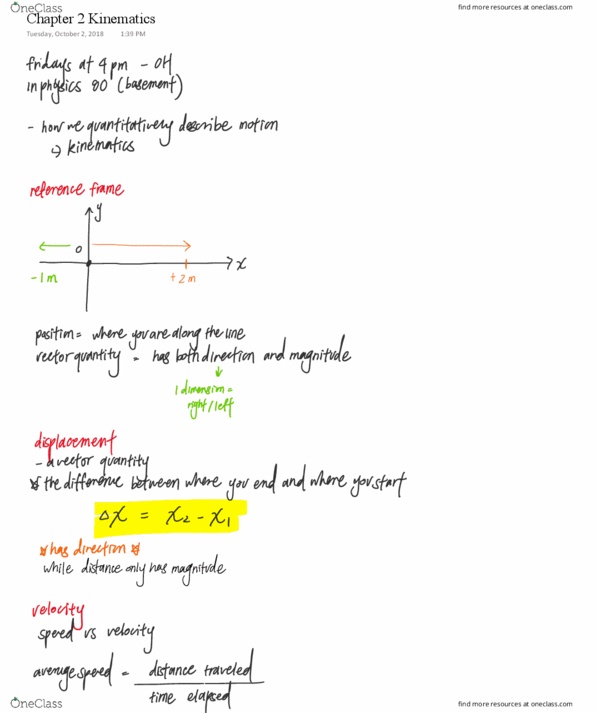 OneClass
find more resources at oneclass.com
Chapter 2 Kinematics
Tuesday, October 2, 2018 1:39 PM
fridays at 4pm - OH
in physics 90 (basement)
- how we quantitatively describe motion
↳ kinematics
reference frame
y
0
x
-1m
+2m
position = where you are along the line
vector quantity = has both direction and magnitude
1 dimension =
right/left
displacement
- a vector quantity
* the difference between where you end and where you start
Δx = x₂ - x₁
* has direction *
while distance only has magnitude
velocity
speed vs velocity
average speed = distance traveled
time elapsed
OneClass
find more resources at oneclass.com